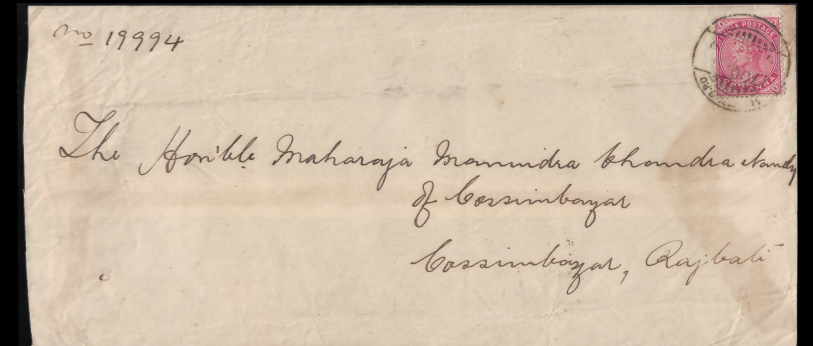 No 19994
INDIA POSTAGE
The Hon'ble Maharaja Manindra Chandra Nandy
of Cossimbazar
Cossimbazar, Rajbati